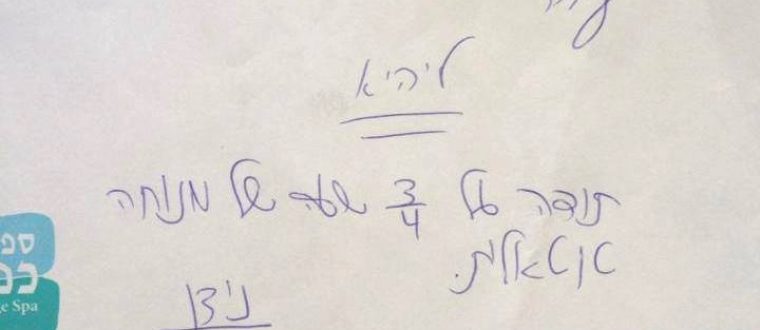 ליהיא
תודה על 3/4 שעה של מנוחה
טוטאלית.
ניצן
ספ
ge Spa